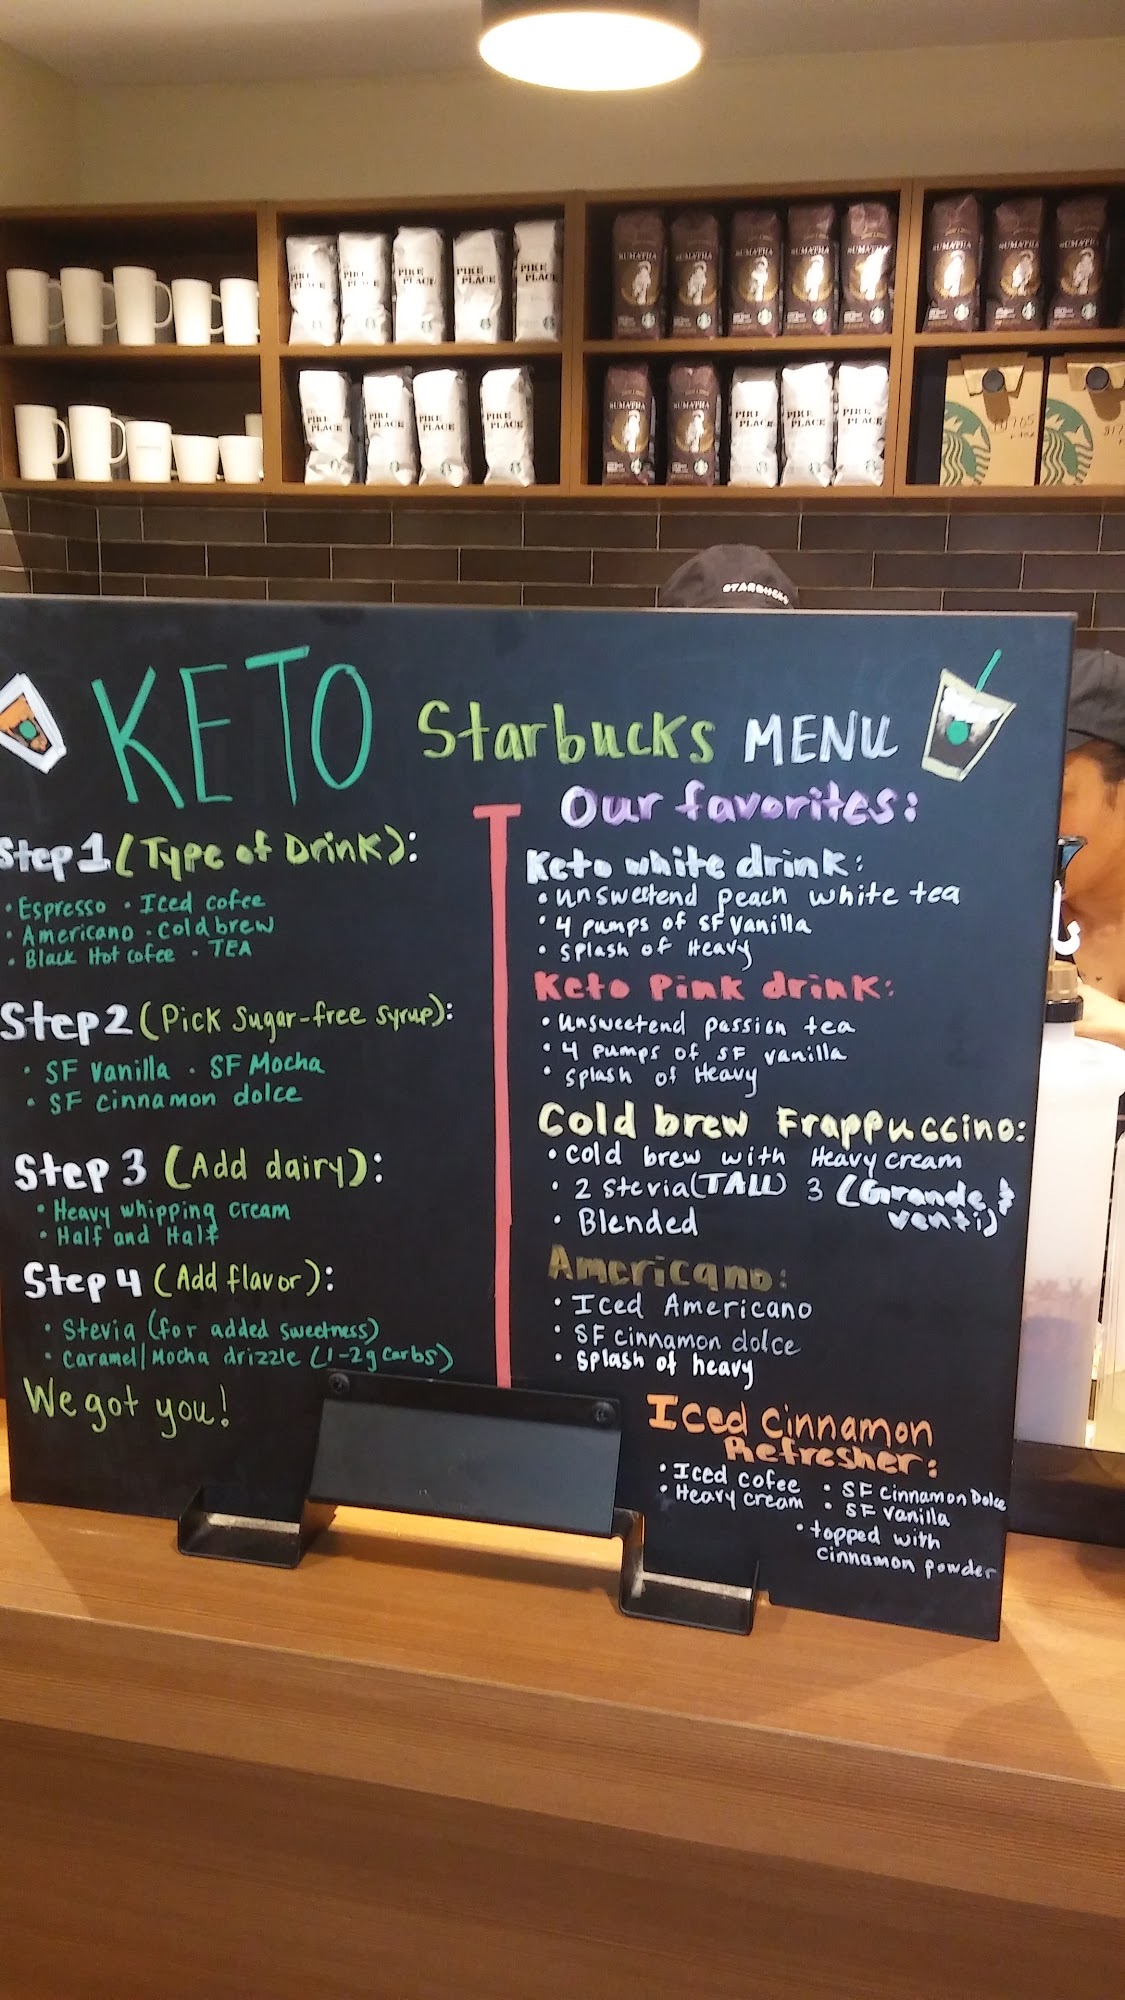 PIKE PLACE
PIKE PLACE
PIKE PLACE
PIKE PLACE
PIKE PLACE
SUMATRA
SUMATRA
SUMATRA
SUMATRA
SUMATRA
SUMATRA
SUMATRA
SUMATRA
PIKE PLACE
PIKE PLACE
PIKE PLACE
PIKE PLACE
SUMATRA
SUMATRA
PIKE PLACE
PIKE PLACE
PIKE PLACE
STARBUCKS
KETO Starbucks MENU
Step 1 (Type of Drink):
• Espresso • Iced cofee
• Americano • Cold brew
• Black Hot cofee • TEA
Step 2 (Pick Sugar-free syrup):
• SF vanilla • SF Mocha
• SF cinnamon dolce
Step 3 (Add dairy):
• Heavy whipping cream
• Half and Half
Step 4 (Add flavor):
• Stevia (for added sweetness)
• Caramel/Mocha drizzle (1-2g carbs)
We got you!
Our favorites:
Keto white drink:
• unsweetend peach white tea
• 4 pumps of SF vanilla
• splash of Heavy
Keto Pink drink:
• unsweetend passion tea
• 4 pumps of SF vanilla
• splash of Heavy
Cold brew Frappuccino:
• cold brew with Heavy cream
• 2 stevia (TALL) 3 (Grande &
venti)
• Blended
Americano:
• Iced Americano
• SF cinnamon dolce
• splash of heavy
Iced Cinnamon
Refresher:
• Iced cofee • SF Cinnamon Dolce
• Heavy cream • SF vanilla
• topped with
cinnamon powder